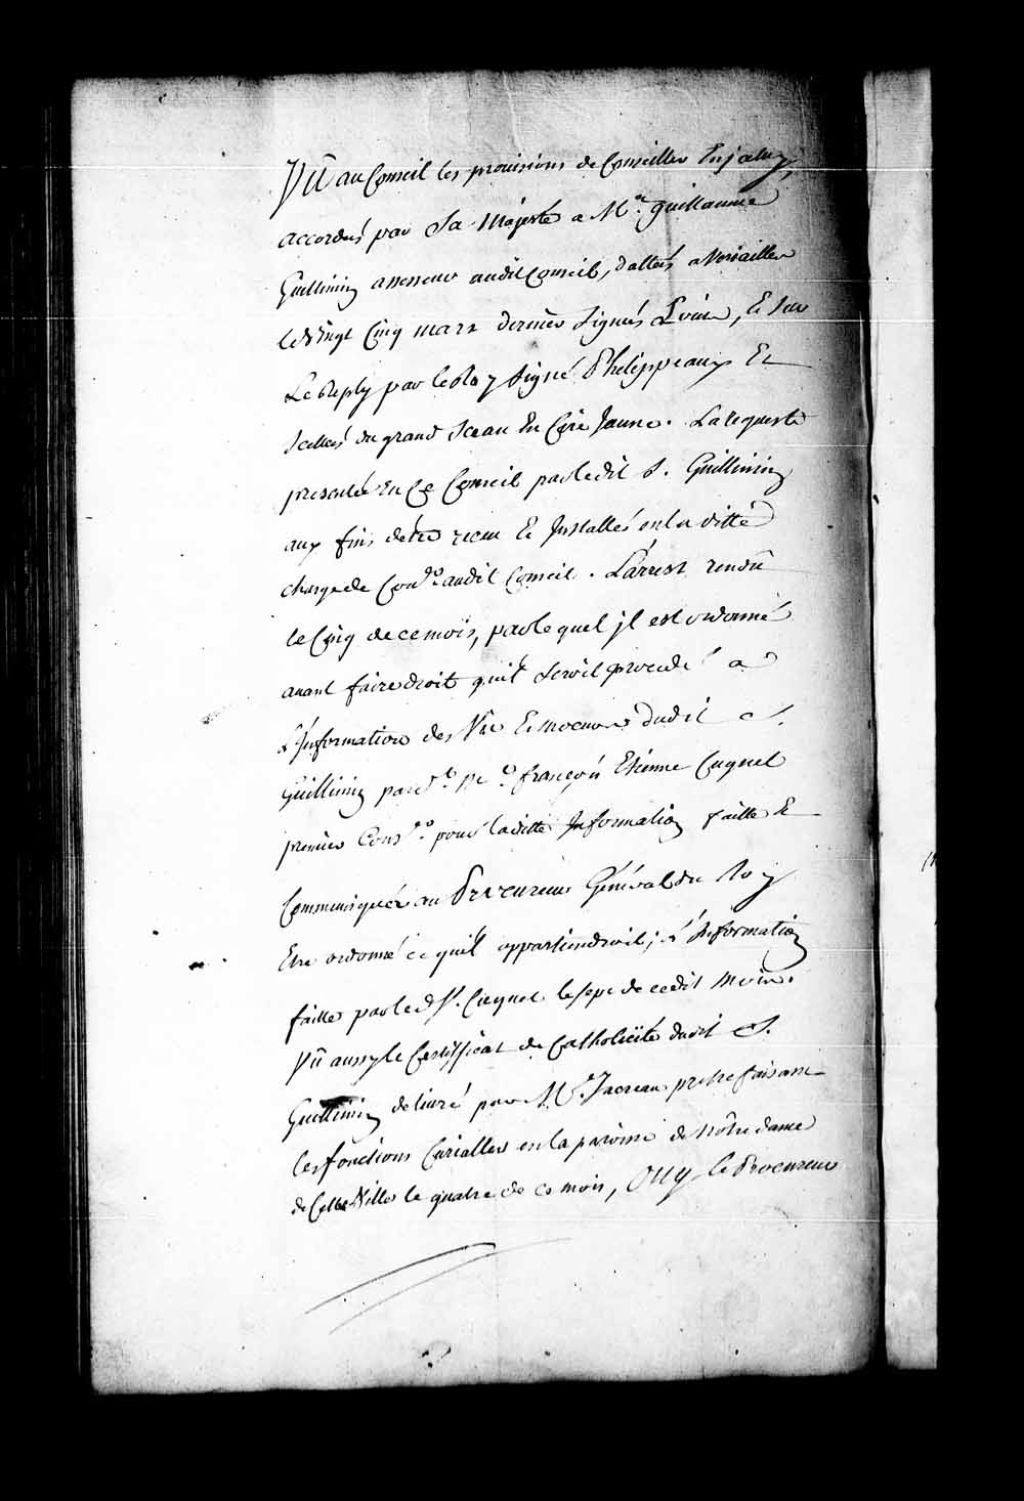 Vû au Conseil les provisions de Conseiller En jceluy,
accordées par Sa Majesté a Me. Guillaume
Guillimin assesseur audit Conseil, dattées a Versailles
le Vingt Cinq mars dernier Signées Loüis, Et sur
Le Reply par le Roy Signé Phelippeaux Et
Scellées du grand Sceau En Cire Jaune. La requeste
presentée En Ce Conseil par ledit S. Guillimin
aux fins d'être receu Et Jnstallés en la ditte
charge de Coner. audit Conseil. L'arrest rendû
le Cinq de ce mois, par le quel jl est ordonné
avant faire droit qu'il seroit procedé a
L'Jnformation des Vie Et moeurs dudit S.
Guillimin par Me. françois Etienne Cugnet
premier Coner. pour la ditte Jnformation faitte Et
Communiquée au Procureur Général du Roy
Etre ordonné ce qu'il appartiendroit; L'Jnformation
faitte par led. S. Cugnet le sept de cedit mois.
Vû aussy le Certifficat de Catholicité dudit S.
Guillimin delivré par Me. Jacreau prestre faisant
les fonctions Curialles en la paroisse de Nôtre dame
de Cette Ville le quatre de ce mois, Ouy le Procureur